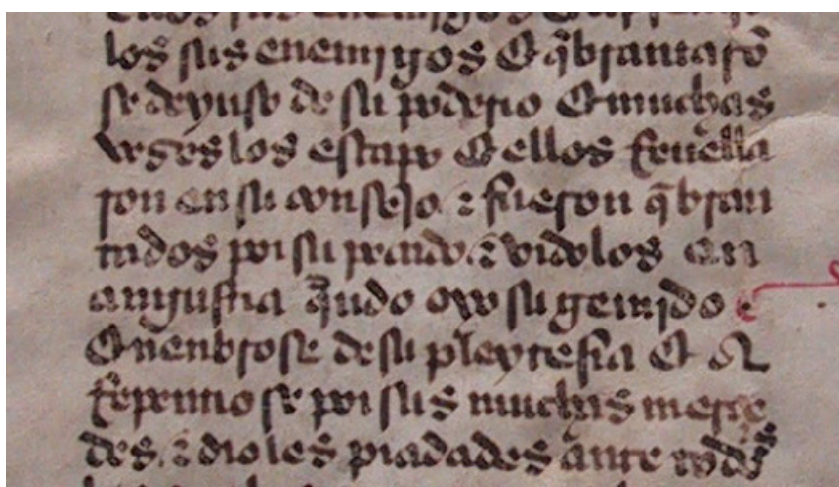 los sus enemigos E q̃brantarõ
se deyuso de su poderio E muchas
vezes los escapo E ellos rreuella
ron en su consejo ⁊ fueron q̃bran
tados por su pecado ⁊ vidolos en
angustia q̃ndo oyo su gemido
E nenbrose de su pleytesia E
rrepintio se por sus muchas merçe
des ⁊ dioles piadades ante todos